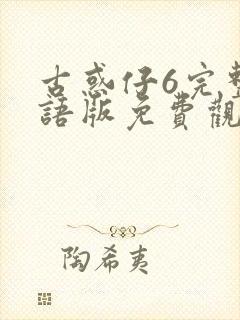 古惑仔6完整
語版免費觀
陶希夷